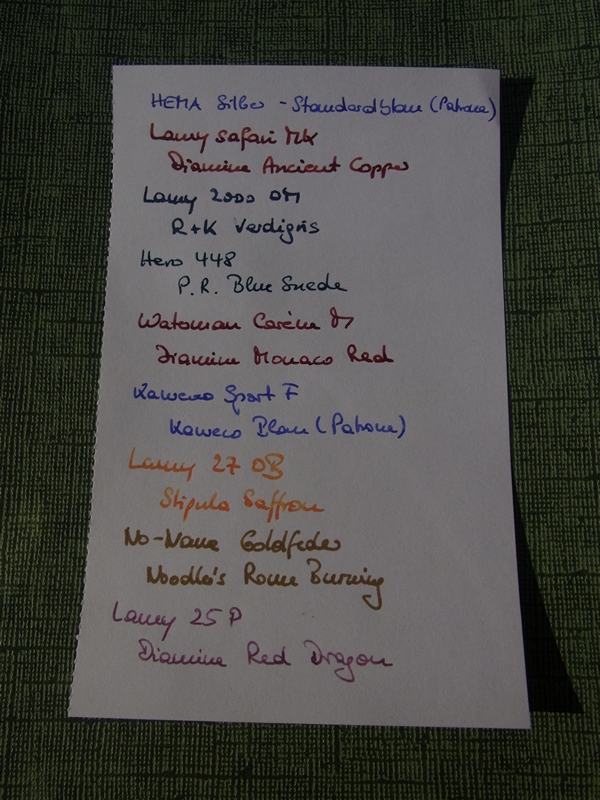 HEMA Silber - Standardblau (Patrone)
Lamy Safari MK
Diamine Ancient Copper
Lamy 2000 OM
R+K Verdigris
Hero 448
P.R. Blue Suede
Waterman Carène M
Diamine Monaco Red
Kaweco Sport F
Kaweco Blau (Patrone)
Lamy 27 OB
Stipula Saffron
No-Name Goldfeder
Noodler's Rome Burning
Lamy 25 P
Diamine Red Dragon